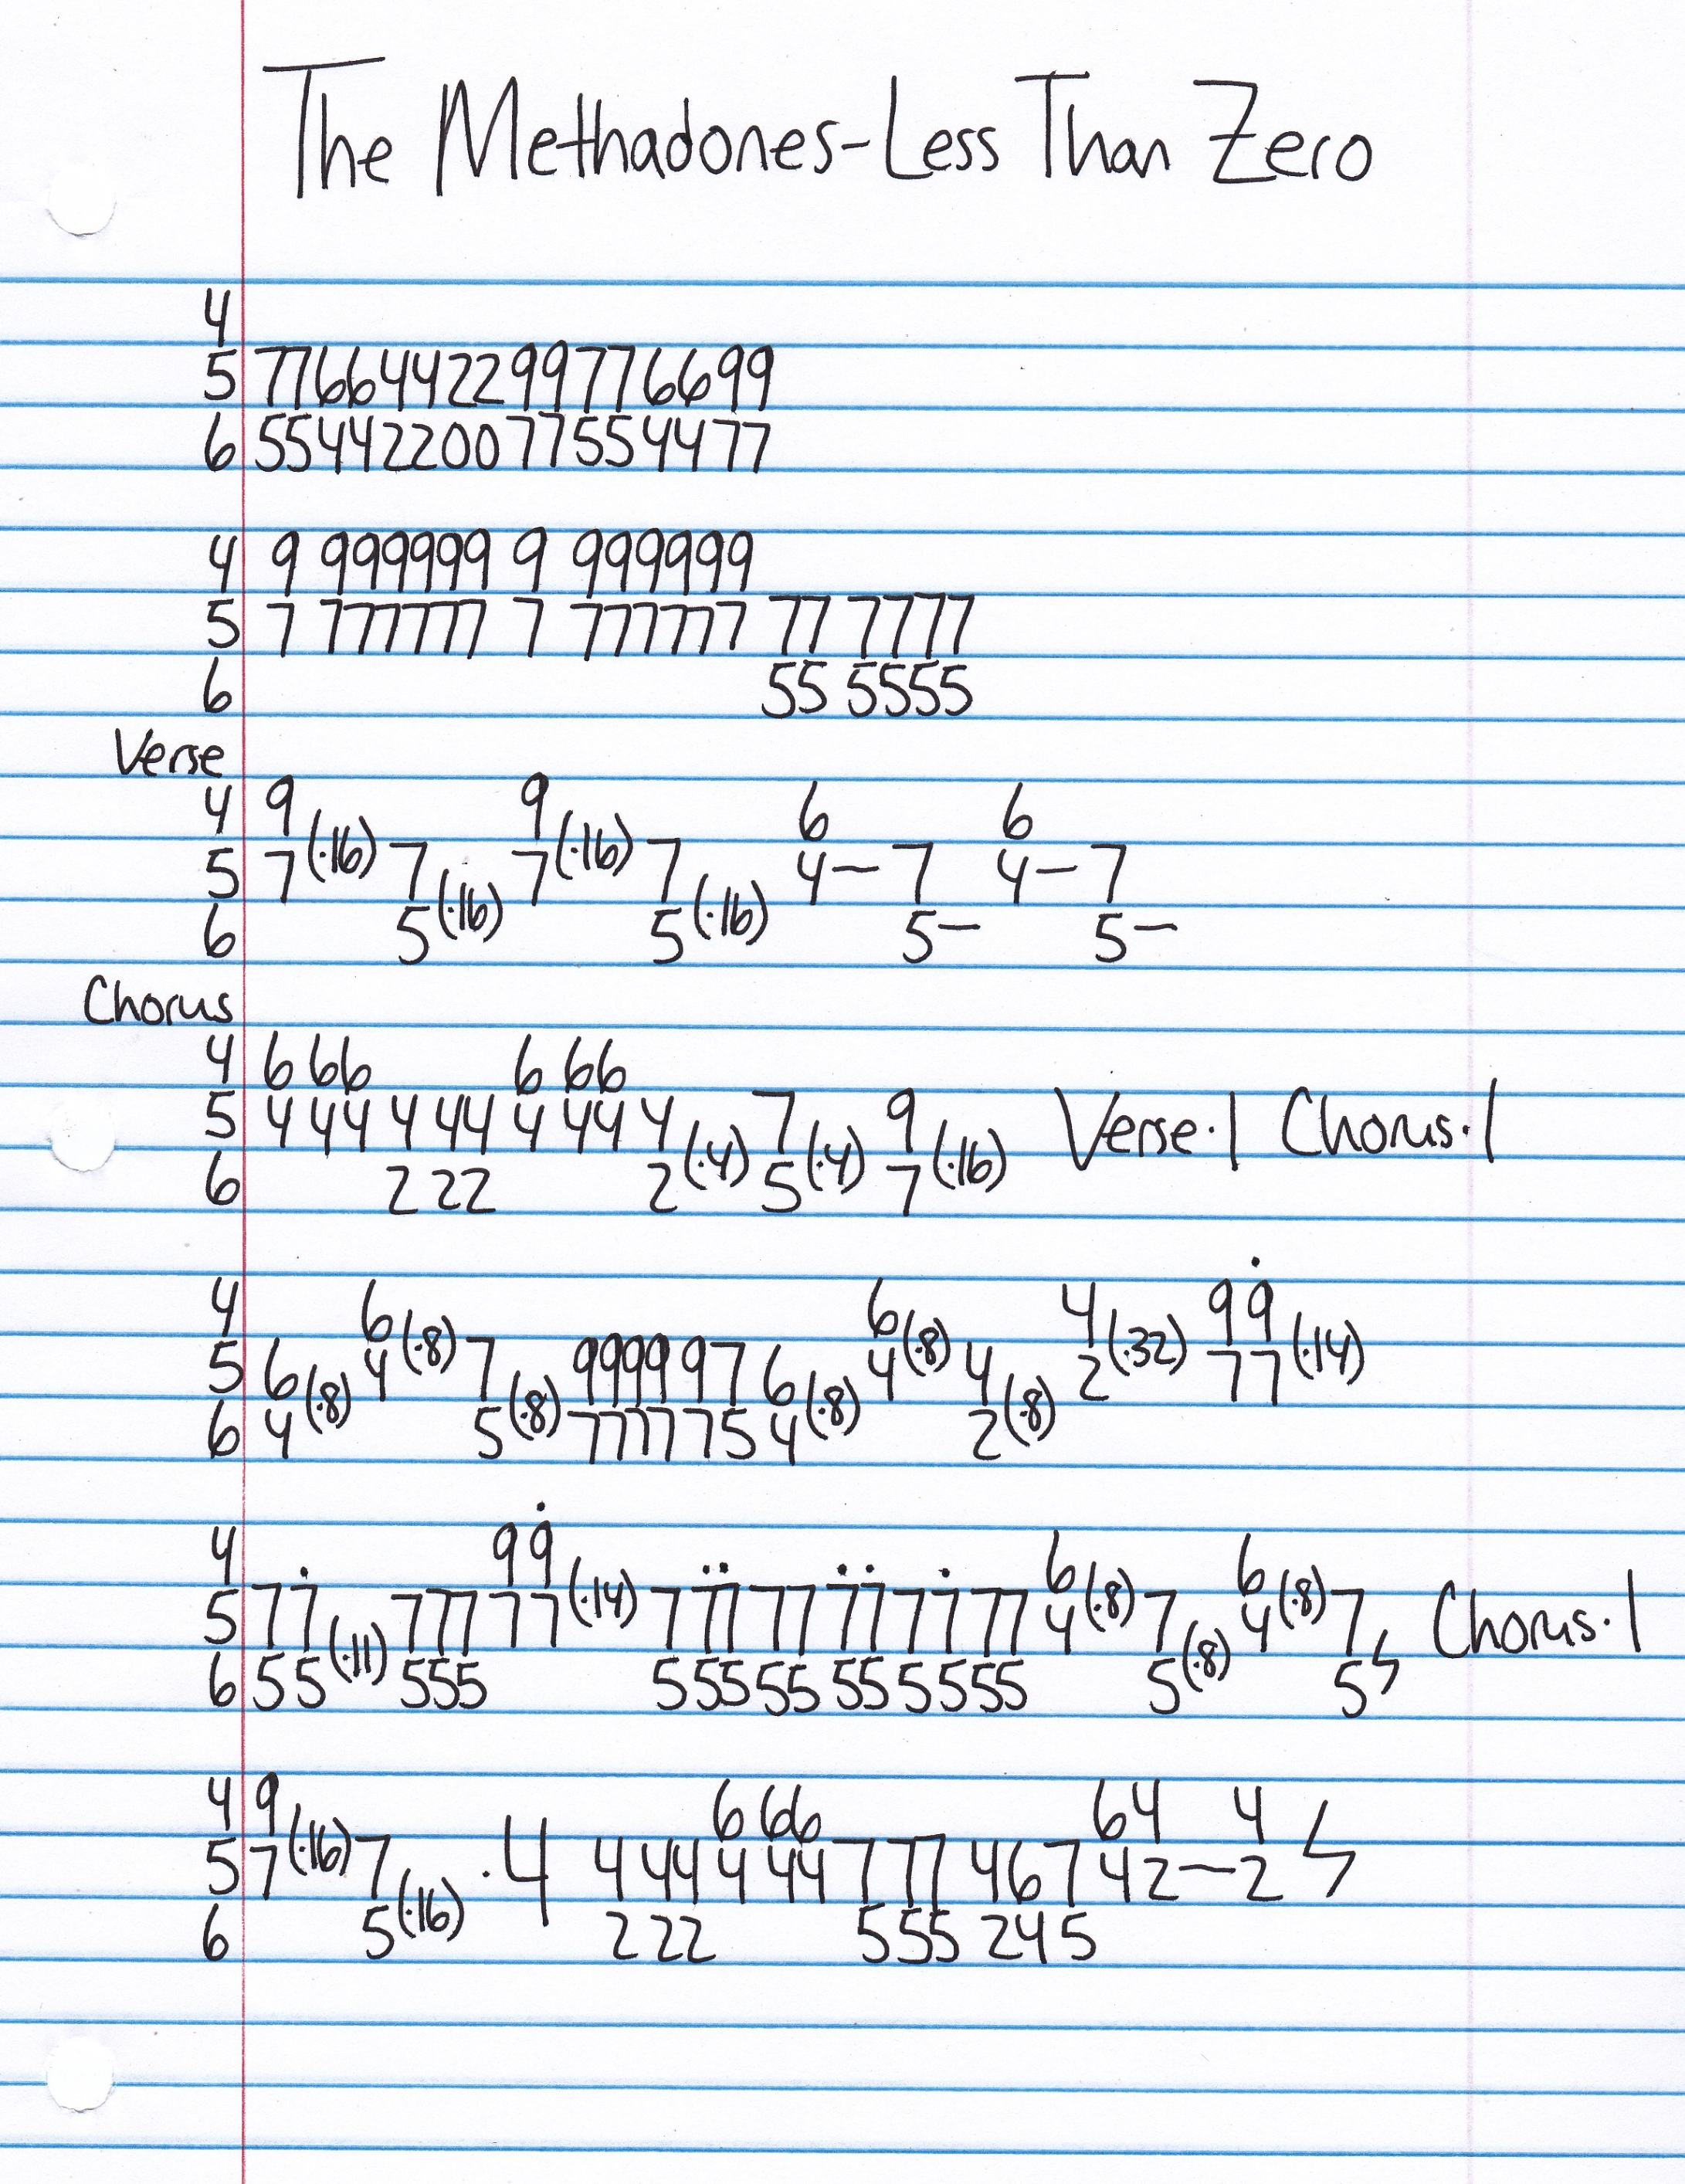 The Methadones-Less Than Zero
4
5 7766442299776699
6 5544220077554477
4 9 999999 9 999999
5 7 777777 7 777777 77 7777
6 55 5555
Verse
4 9 9 6 6
5 7 (·16) 7 7 (·16) 7 4 — 7 4 — 7
6 5 (·16) 5 (·16) 5 — 5 —
Chorus
4 6 66 6 66
5 4 44 4 44 4 44 4 7 9 Verse·1 Chorus·1
6 2 22 2 (·4) 5 (·4) 7 (·16)
4 6 6 4 9 9̇
5 6 4 (·8) 7 9999 97 6 4 (·8) 4 2 (·32) 7 7 (·14)
6 4 (·8) 5 (·8) 7777 75 4 (·8) 2 (·8)
4 9 9̇ 6 6
5 7 7̇ 777 7 7 (·14) 7 7̇7̇ 77 7̇7̇ 7 7̇ 77 4 (·8) 7 4 (·8) 7 Chorus·1
6 5 5 (·11) 555 5 55 55 55 5 5 55 5 (·8) 5
4 9 6 66 6 4 4
5 7 (·16) 7 ·4 4 44 4 44 7 77 4 6 7 4 2 — 2
6 5 (·16) 2 22 5 55 2 4 5